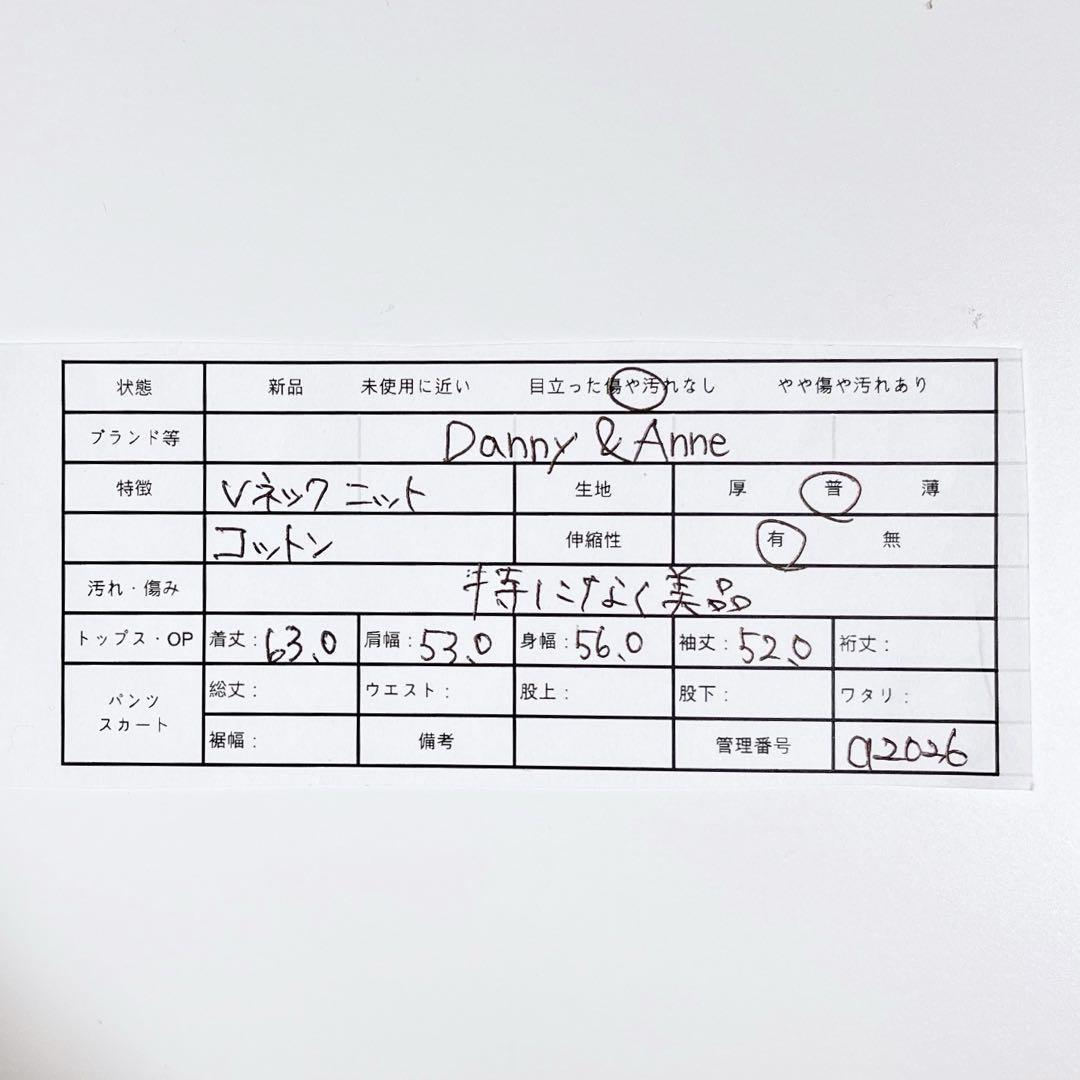 状態 新品 未使用に近い 目立った傷や汚れなし やや傷や汚れあり
ブランド等 Danny & Anne
特徴 Vネックニット 生地 厚 普 薄
コットン 伸縮性 有 無
汚れ・傷み 特になく美品
トップス・OP 着丈：63.0 肩幅：53.0 身幅：56.0 袖丈：52.0 裄丈：
パンツ スカート 総丈： ウエスト： 股上： 股下： ワタリ：
裾幅： 備考 管理番号 a2026